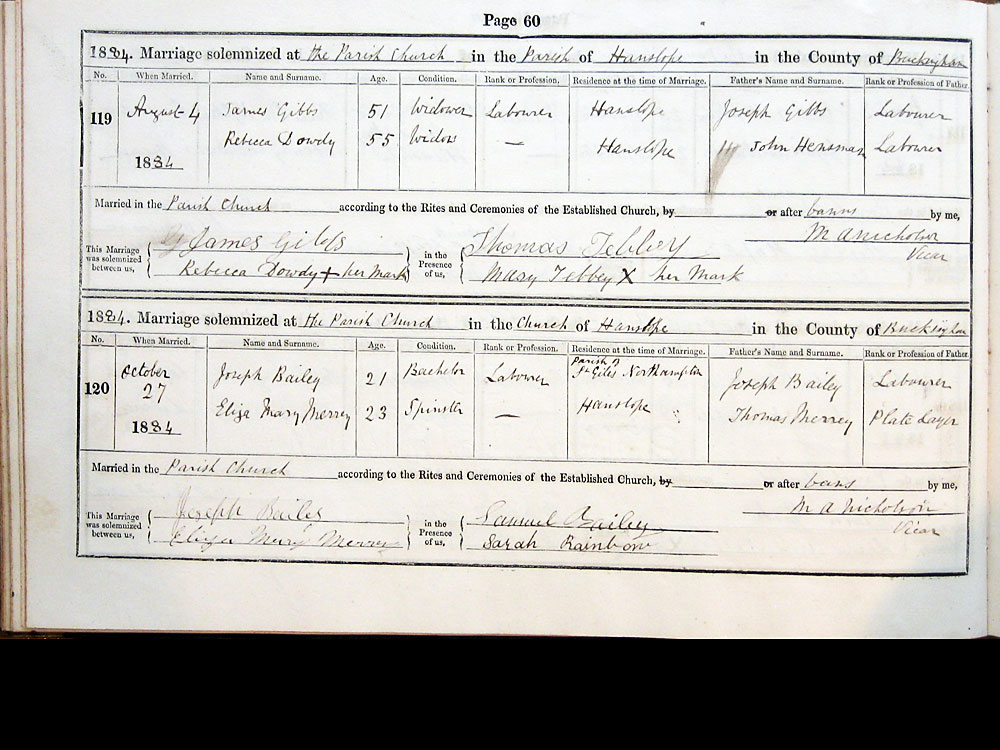 Page 60
1884. Marriage solemnized at the Parish Church in the Parish of Hanslope in the County of Buckingham
No. When Married. Name and Surname. Age. Condition. Rank or Profession. Residence at the time of Marriage. Father's Name and Surname. Rank or Profession of Father.
119 August 4 James Gibbs 51 Widower Labourer Hanslope Joseph Gibbs Labourer
Rebecca Dowdy 55 Widow — Hanslope John Hensman Labourer
1884
Married in the Parish Church according to the Rites and Ceremonies of the Established Church, by or after banns by me,
M A Nicholson
Vicar
This Marriage was solemnized between us, James Gibbs in the Presence of us, Thomas Tebbey
Rebecca Dowdy + her Mark Mary Tebbey X her Mark
1884. Marriage solemnized at the Parish Church in the Church of Hanslope in the County of Buckingham
No. When Married. Name and Surname. Age. Condition. Rank or Profession. Residence at the time of Marriage. Father's Name and Surname. Rank or Profession of Father.
120 October 27 Joseph Bailey 21 Bachelor Labourer Parish of St Giles Northampton Joseph Bailey Labourer
Eliza Mary Merrey 23 Spinster — Hanslope Thomas Merrey Plate Layer
1884
Married in the Parish Church according to the Rites and Ceremonies of the Established Church, by or after bans by me,
M A Nicholson
Vicar
This Marriage was solemnized between us, Joseph Bailey in the Presence of us, Samuel Bailey
Eliza Mary Merrey Sarah Rainbow